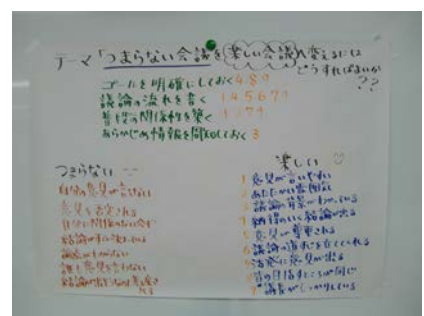 テーマ「つまらない会議を楽しい会議へ変えるには
どうすればよいか
??
ゴールを明確にしておく 4 8 9
議論の流れを書く 1 4 5 6 7 9
普段の関係性を築く 1 2 7 9
あらかじめ情報を開示しておく 3
つまらない
自分の意見が言えない
意見を否定される
自分に関係のない会議
結論がすでに決まっている
議論がわからない
誰も意見を言わない
楽しい
1 意見が言いやすい
2 あたたかい雰囲気
3 議論の背景がわかっている
4 納得のいく結論が出る
5 意見が尊重される
6 議論の道すじを立ててくれる
7 活発に意見が出る
8 皆の目指すところが同じ
9 議長がしっかりしている